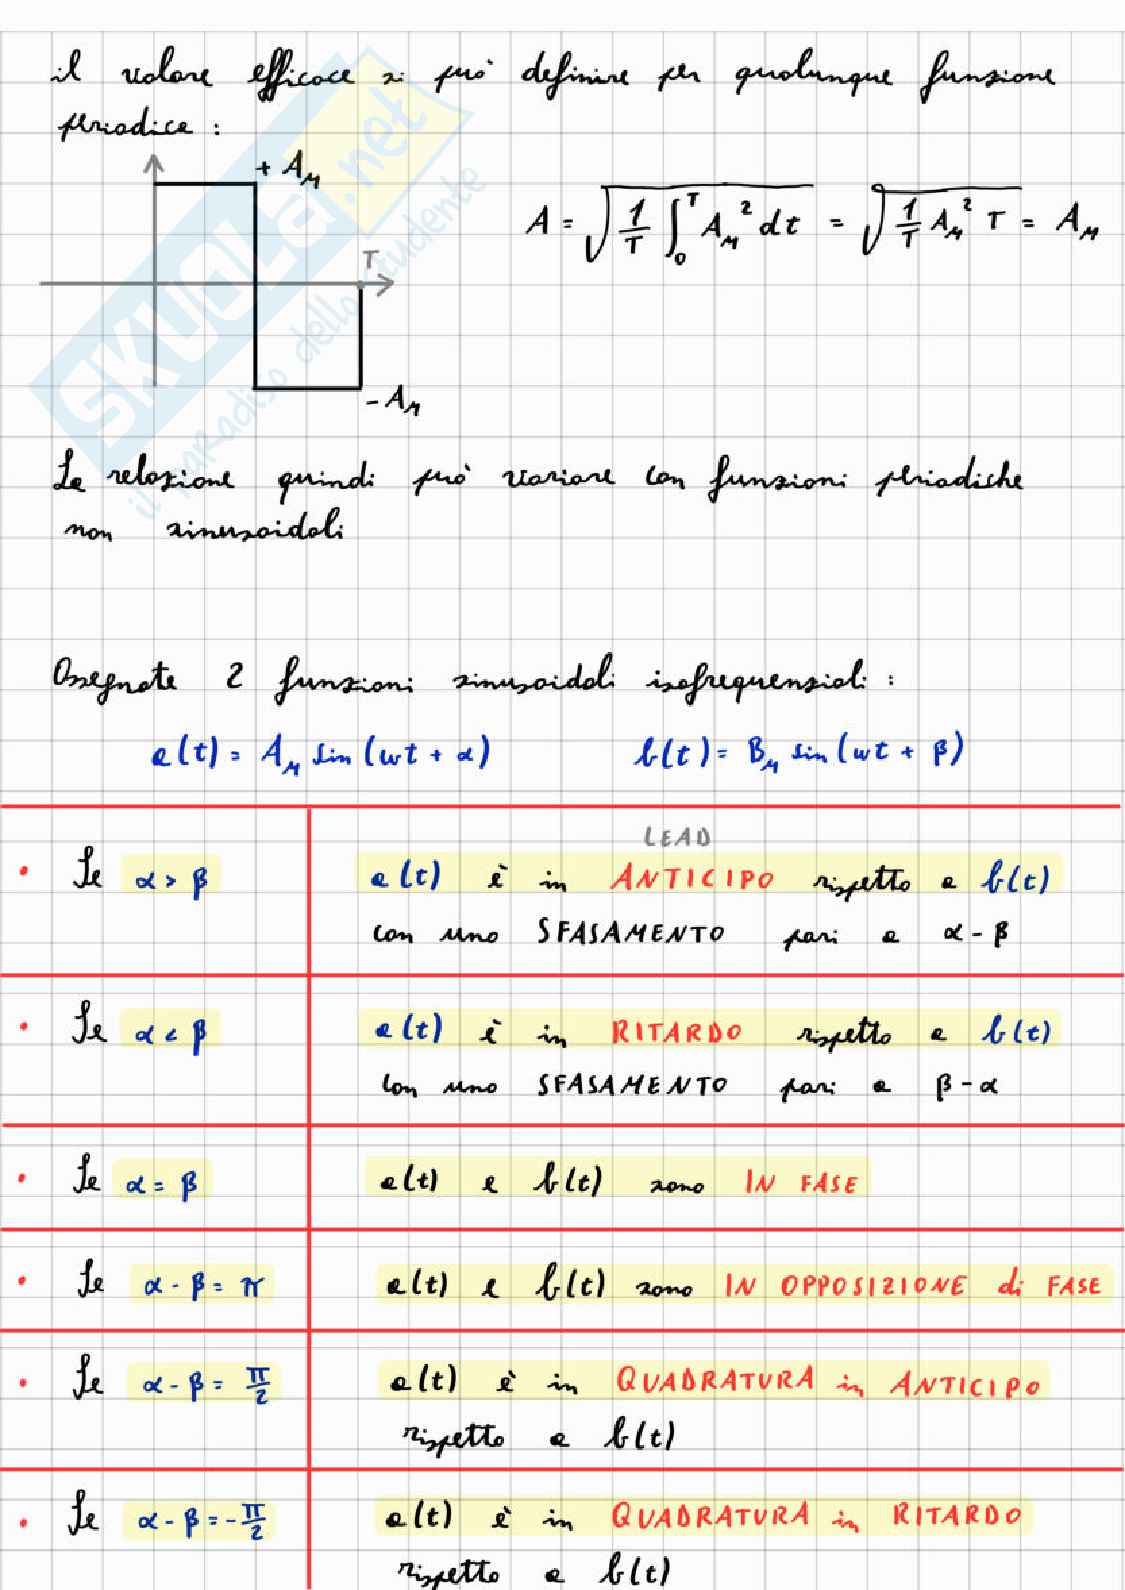 il valore efficace si può definire per qualunque funzione
periodica :
+ A_M
A = √(1/T ∫₀ᵀ A_M² dt) = √(1/T A_M² T) = A_M
T
- A_M
SKUOLA.net
il paradiso dello studente
La relazione quindi può variare con funzioni periodiche
non sinusoidali
Assegnate 2 funzioni sinusoidali isofrequenziali :
a(t) = A_M sin (ωt + α) b(t) = B_M sin (ωt + β)
LEAD
• Se α > β a(t) è in ANTICIPO rispetto a b(t)
con uno SFASAMENTO pari a α - β
• Se α < β a(t) è in RITARDO rispetto a b(t)
con uno SFASAMENTO pari a β - α
• Se α = β a(t) e b(t) sono IN FASE
• Se α - β = π a(t) e b(t) sono IN OPPOSIZIONE di FASE
• Se α - β = π/2 a(t) è in QUADRATURA in ANTICIPO
rispetto a b(t)
• Se α - β = - π/2 a(t) è in QUADRATURA in RITARDO
rispetto a b(t)